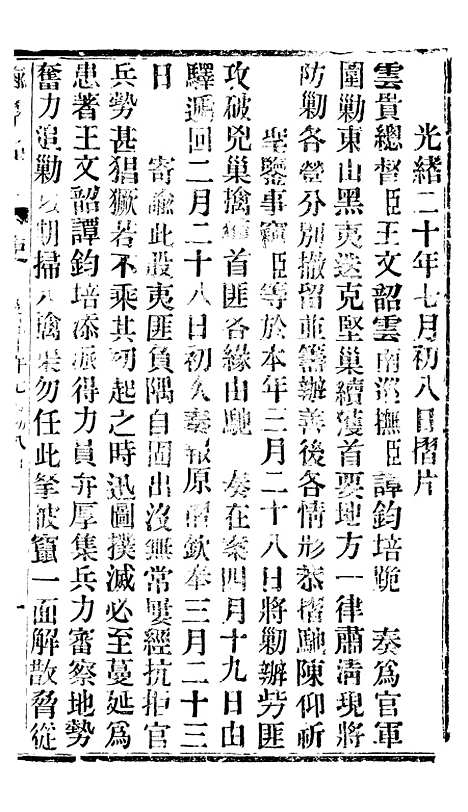 光緒二十年七月初八日摺片
雲貴總督臣王文韶雲南巡撫臣譚鈞培跪 奏為官軍
圍勦東山黑夷迭克堅巢續獲首要地方一律肅清現將
防勦各營分別撤留並籌辦善後各情形恭摺馳陳仰祈
聖鑒事竊臣等於本年三月二十八日將勦辦夷匪
攻破兇巢擒獲首匪各緣由馳 奏在案四月十九日由
驛遞回二月二十八日初次奏報原摺欽奉三月二十三
日 寄諭此股夷匪負隅自固出沒無常屢經抗拒官
兵勢甚猖獗若不乘其初起之時迅圖撲滅必至蔓延為
患著王文韶譚鈞培添派得力員弁厚集兵力審察地勢
奮力追勦以期掃穴擒渠勿任此拏彼竄一面解散脅從